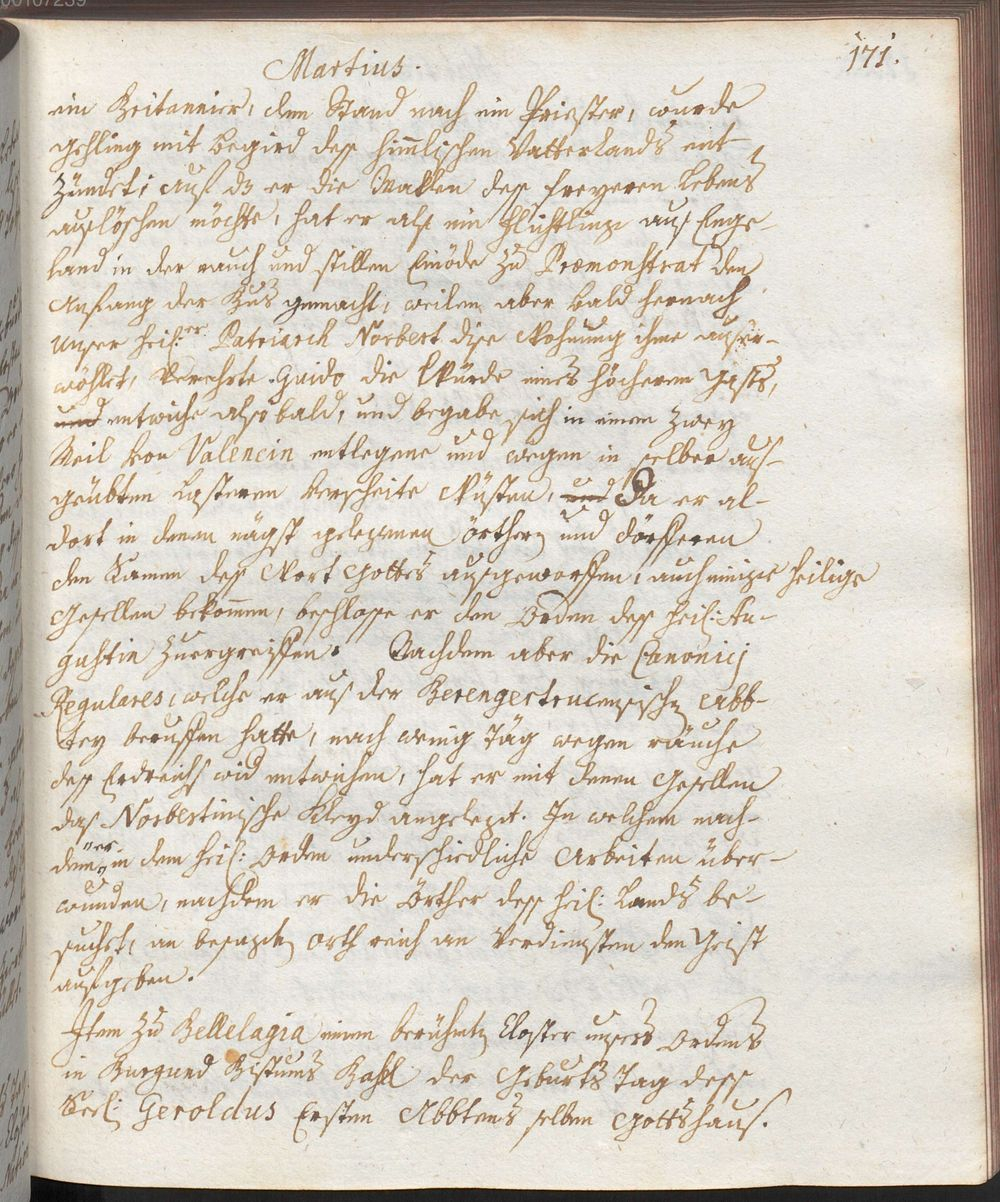 00107239
Martius.
171.
ein Britannier, dem Stand nach ein Priester, wurde
gehling mit begird deß himlischen Vatterlands ent-
zündet; auß dz er die Maklen deß freyeren Lebens
auslöschen möchte, hat er alß ein flichtling auß Enge-
land in der rauch und stillen Einöde zu Præmonstrat den
Anfang der Bus gemacht, weilen aber bald hernach
unser heil:er Patriarch Norbert dise Wohnung ihme außer-
wöhlet, verehrte Guido die Würde eines höcheren Gasts,
und entwiche alsobald, und begabe sich in einem zwey
Meil von Valencin entlegene und wegen in selber auß-
geübten Lasteren verscheite Wüsten, und Da er al-
dort in denen nägst gelegenen örthern und dörfferen
den Samen deß Wort Gottes außgeworffen, auch einige heilige
Gesellen bekommen, beschlosse er den Orden deß heil: Au-
gustin zuergreiffen. Nachdem aber die Canonicj
Regulares, welche er aus der Berengertrucensischen Abb-
tey beruffen hatte, nach wenig Täg wegen räuche
deß Erdreichs wid entwichen, hat er mit denen Gesellen
das Norbertinische Kleyd angelegt. In welchem nach-
deme er in dem heil: Orden underschiedliche Arbeiten über-
wunden, nachdem er die örther deß heil: Lands be-
sucht, an besagten orth reich an Verdiensten den Geist
aufgeben.
Item zu Bellelagia einem berühmten Closter unsers Ordens
in Burgund Bistums Basel der Geburts Tag dess
Seel: Geroldus Ersten Abbtens selben Gottshaus.